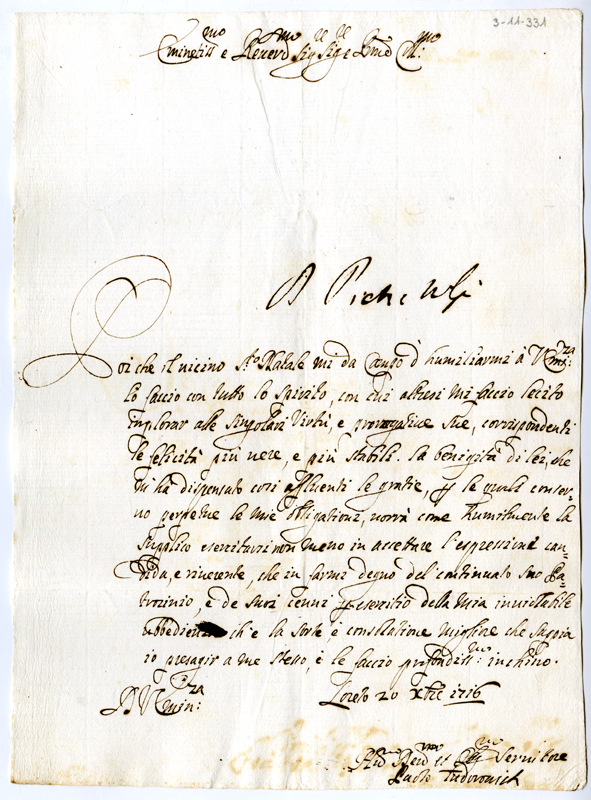 3-11-331
Eminetiss^mo e Reverd^mo Sig^re Sig^re e Prnē Col^mo
Poi che il vicino S^to Natale mi da Causo d'humiliarmi à V Emi^za:
Lo faccio con tutto lo spirito, con cui altresi mi faccio lecito
implorar alle singolari Virtù, e prerogative sue, corrispondenti
le felicità più vere, e più stabili. La benignità di lei, che
mi ha dispensato così affluenti le gratie, p le quali conser-
vo perpetue le mie obligationi, vorrà come humilmente la
supplico esercitarsi non meno in accettare l'espressioni can-
dida, e riverente, che in farmi degno del continuato suo Pa-
trocinio, e de suoi cenni p esercitio della mia inviolabile
ubbedienza ch'e la sorte e consolatione migliore che sappia
io presagir a me stesso, e le faccio profondiss^mo: inchino.
D V Emin^za:
Loreto 20 Xbre 1716
Hu^mo Dev^mo et Obl^mo Servitore
Paolo